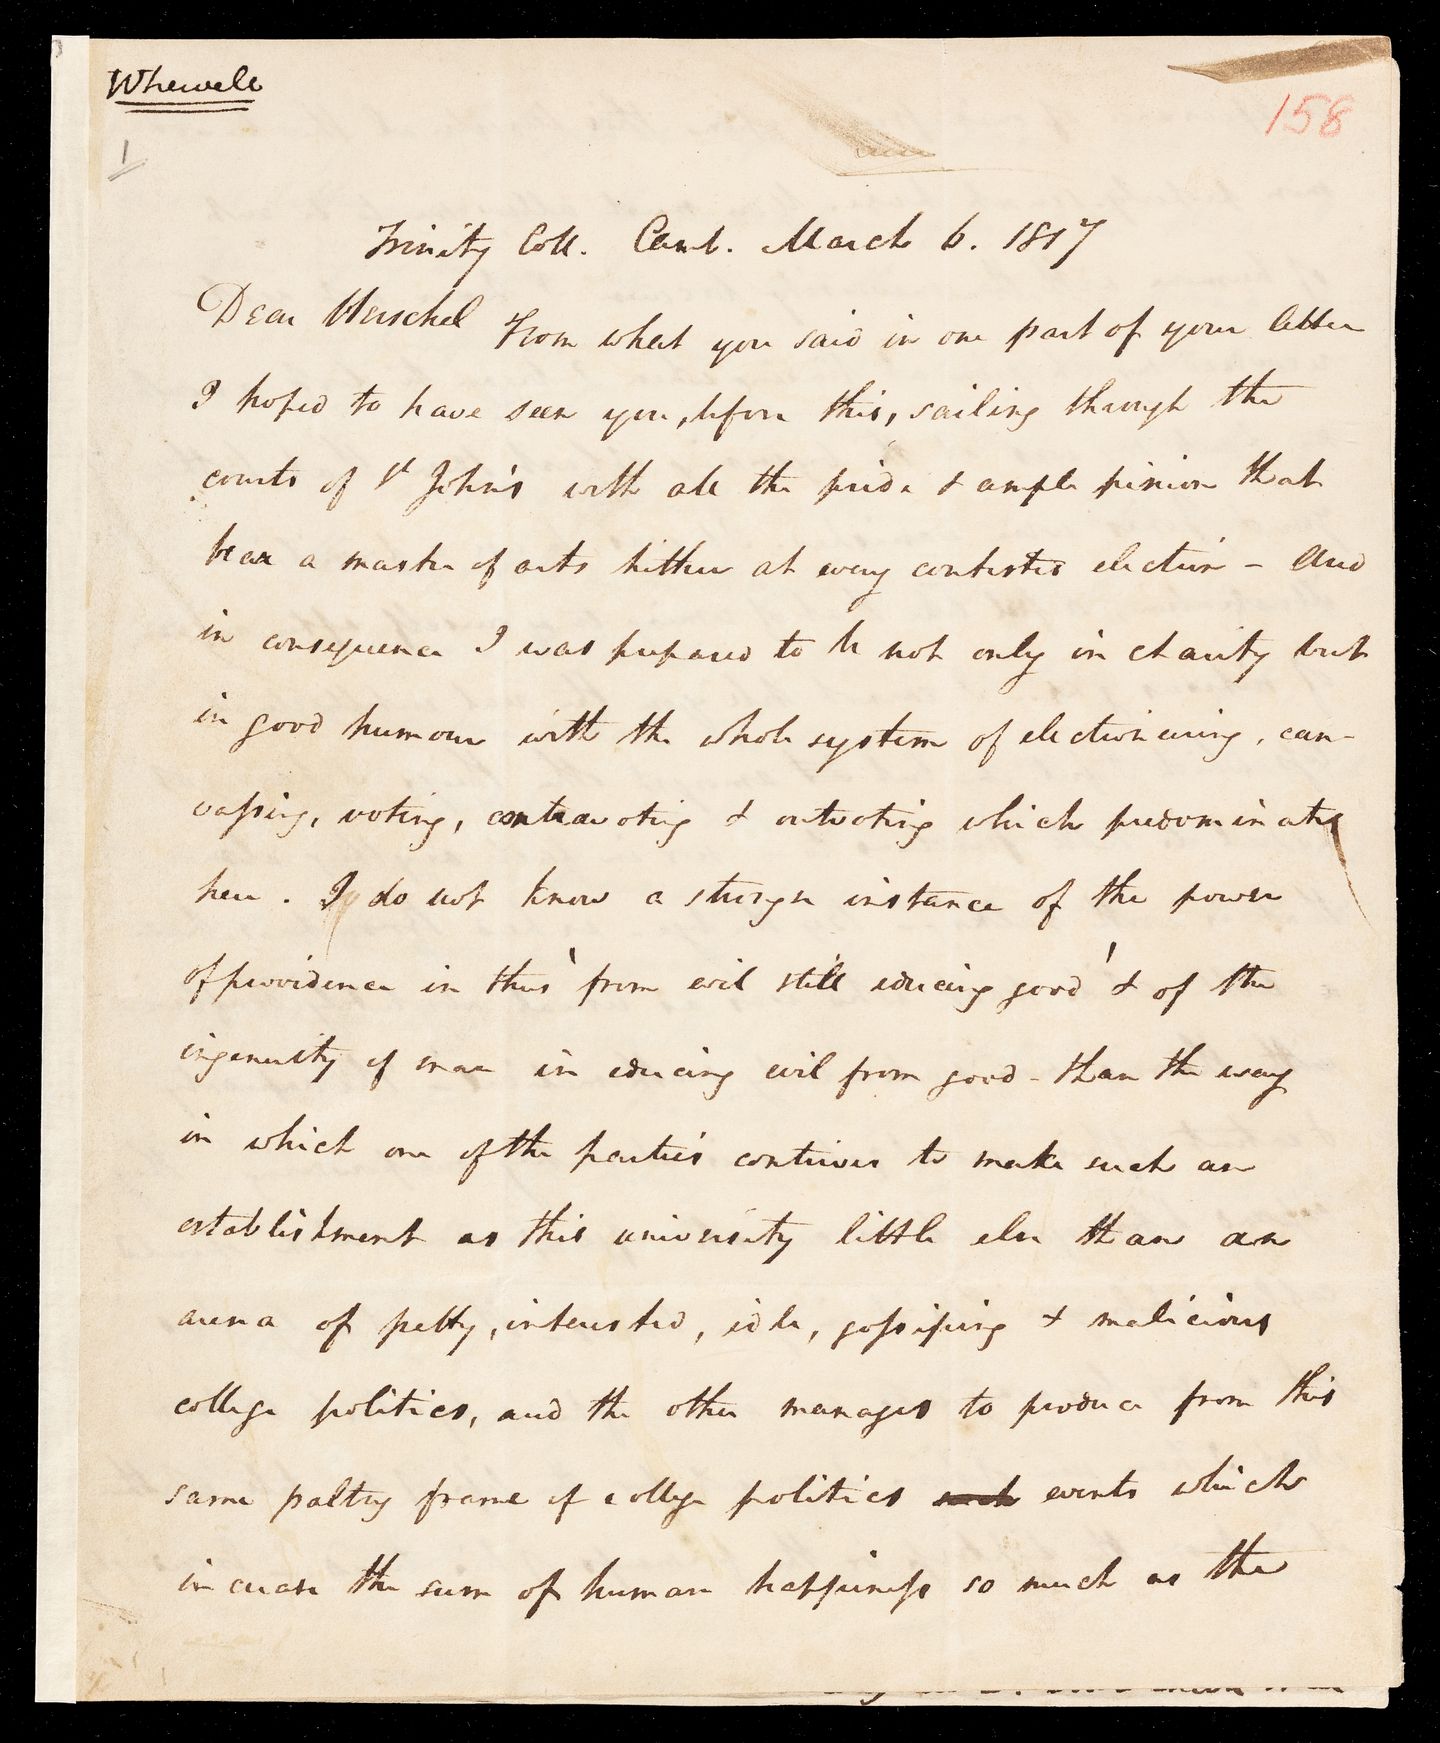 Whewell
1
158
Trinity Coll. Camb. March 6. 1817
Dear Herschel From what you said in one part of your letter
I hoped to have seen you, before this, sailing through the
courts of St John's with all the pride & ample pinion that
bear a master of arts hither at every contested election - And
in consequence I was prepared to be not only in charity but
in good humour with the whole system of electioneering, can-
vassing, voting, contravoting & outvoting which predominates
here. I do not know a stronger instance of the power
of providence in thus 'from evil still educing good' & of the
ingenuity of man in educing evil from good - than the way
in which one of the parties contrives to make such an
establishment as this university little else than an
arena of petty, interested, idle, gossiping & malicious
college politics, and the other manages to produce from this
same paltry frame of college politics such events which
increase the sum of human happiness so much as the